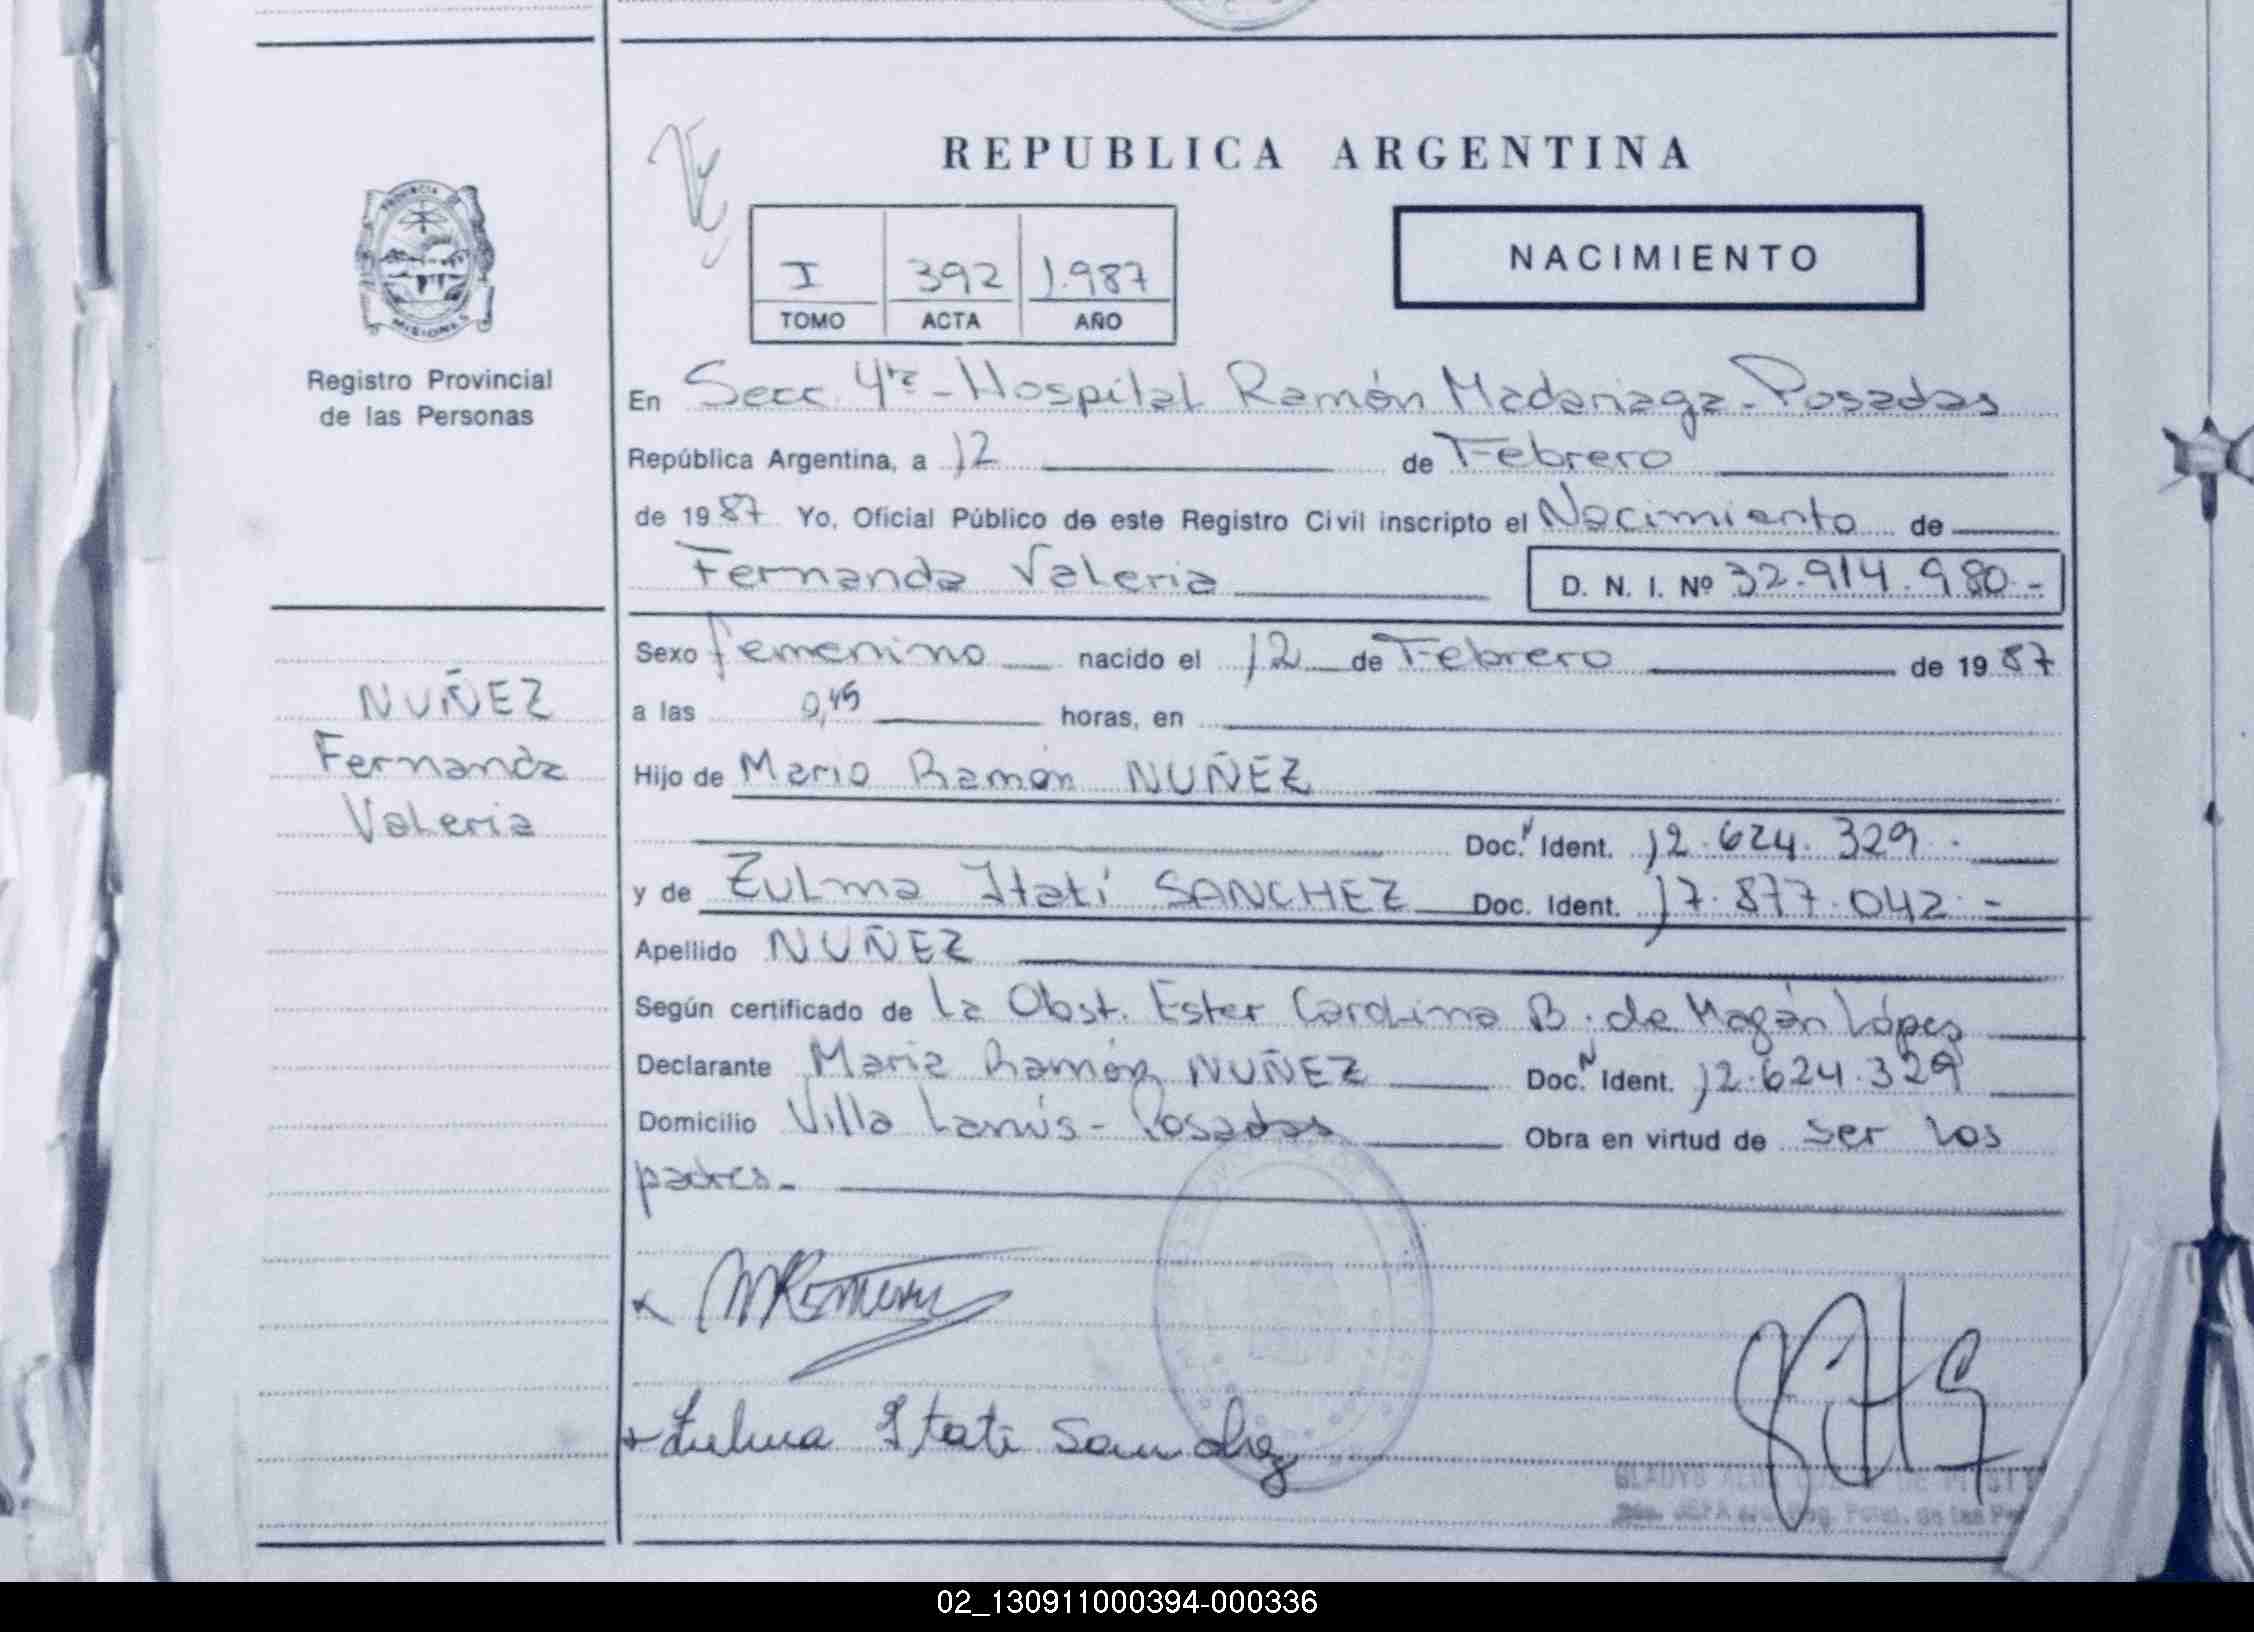 REPUBLICA ARGENTINA
PROVINCIA DE
MISIONES
Registro Provincial
de las Personas
I 392 1.987
TOMO ACTA AÑO
NACIMIENTO
En Secc. 4ta - Hospital Ramón Madariaga - Posadas
República Argentina, a 12 de Febrero
de 1987 Yo, Oficial Público de este Registro Civil inscripto el Nacimiento de
Fernanda Valeria D. N. I. Nº 32.914.980.-
Sexo femenino nacido el 12 de Febrero de 1987
a las 0,45 horas, en
NUÑEZ
Fernanda
Valeria
Hijo de Mario Ramón NUÑEZ
Doc. Ident. 12.624.329.
y de Zulma Itatí SANCHEZ Doc. Ident. 17.877.042.-
Apellido NUÑEZ
Según certificado de la Obst. Ester Carolina B. de Magán López
Declarante Maria Ramón NUÑEZ Doc. Ident. 12.624.329
Domicilio Villa Lanús - Posadas Obra en virtud de ser los
padres.-
Zulma Itati Sanchez
GLADYS
02_130911000394-000336